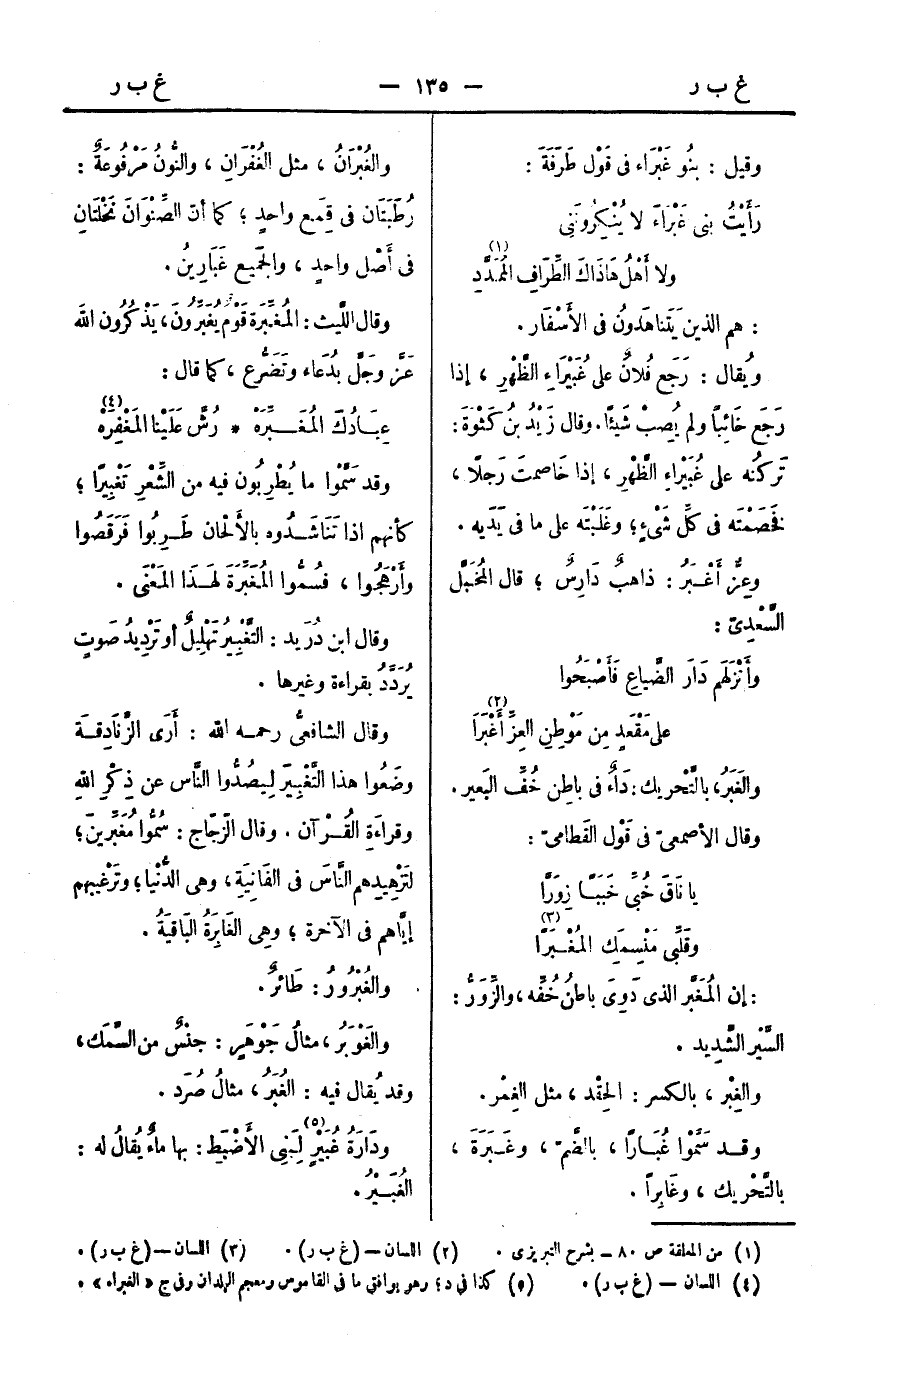 غ ب ر — ١٣٥ — غ ب ر
وقيل : بنُو غَبْرَاء فى قَوْل طَرَفَةَ :
رَأَيْتُ بنى غَبْرَاءَ لا يُنْكِرُونَنِى
ولا أَهْلُ هَاذَاكَ الطِّرَافِ المُمَدَّدِ (١)
: هم الذين يَتَناهَدُونُ فى الأَسْفَار .
ويُقال : رَجَع فُلانٌ على غُبَيْرَاءِ الظَّهْرِ ، إذا
رَجَع خَائِباً ولم يُصِبْ شَيْئًا. وقال زَيْدُ بنُ كَثْوَةَ :
تَركتُه على غُبَيْراءِ الظَّهْرِ ، إذا خَاصمتَ رَجلًا ،
فخَصَمْتَه فى كلِّ شَىْءٍ؛ وغَلَبْتَه على ما فى يَدَيه .
وعِزٌّ أَغْـبَرُ : ذاهبٌ دَارِسٌ ؛ قال المُخَبَّل
السَّعْدِىّ :
وأَنْزَلَهم دَارَ الضَّياعِ فَأَصْبَحُوا
على مَقْعَدٍ مِن مَوْطِنِ العِزِّ أَغْبَرَا (٢)
والغَبَرُ، بالتَّحْريك : دَاءٌ فى باطِن خُفِّ البَعير .
وقال الأصمعىّ فى قَوْل القَطامىّ :
يا نَاقَ خُبِّى خَبَبًـا زِوَرَّا
وقَلِّبِى مَنْسِمَكِ المُغْـبَرَّا (٣)
: إن المُغَبَّر الذى دَوِىَ باطنُ خُفِّه ، والزِّوَرُّ :
السَّيْر الشَّدِيد .
والغِبْر ، بالكسر : الحِقْد ، مثل الغِمْر.
وقـد سَمَّوْا غُبَـارًا ، بالضّم ، وغَـبَرَةَ ،
بالتَّحْرِيك ، وغَابِراً .
والغُبْرَانُ ، مثل الغُفْرَانِ ، والنُّونُ مَرْفُوعَةٌ :
رُطَبَتَان فى قِمَعٍ واحدٍ ؛ كما أنّ الصِّنْوَانَ نَخْلَتَانِ
فى أَصْل واحدٍ ، والجَمِيع غَبَارِينُ .
وقال اللَّيث : المُغَبِّرَة قَوْمٌ يُغَبِّرُونَ، يَذْكُرُون الله
عَزَّ وجَلَّ بدُعَاء وتَضَرُّع ، كما قال :
عِبَـادُكَ المُغَـــبِّرَهْ * رُشَّ عَلَيْنا المَغْفِرَهْ (٤)
وقد سَمَّوْا ما يُطْرِبُون فيه من الشِّعْرِ تَغْبِيرًا ؛
كأنهم اذا تَنَاشَدُوه بالأَلحْان طَـرِبُوا فَرَقَصُوا
وأَرْهَجُوا ، فسُمُّوا المُغَبِّرَةَ لهـذَا المَعْنَى .
وقال ابن دُرَيد : التَّغْبِيرُ تَهْلِيلٌ أو تَرْدِيدُ صَوتٍ
يُرَدَّدُ بقراءة وغيرها .
وقال الشافعىُّ رحمـه الله : أَرَى الزَّنَادِقـةَ
وضَعُوا هذا التَّغْبِيرَ لِيصُدُّوا النَّاس عن ذِكْرِ اللهِ
وقراءَةِ القُـرْآن . وقال الزَّجّاج : سُمُّوا مُغَبِّرينَ؛
لتَزْهِيدِهم النَّاسَ فى الفَانِيَةِ، وهى الدُّنْيا؛ وتَرْغِيبهم
إيَّاهم فى الآخرة ؛ وهِى الغَابِرَةُ البَاقيَةُ .
والغُبْرُورُ : طَائرٌ.
والغَوْبَرُ ، مثالُ جَوْهَرٍ : جنْسٌ من السَّمَك ،
وقد يُقال فيه : الغُبَرُ ، مثالُ صُرَد .
ودَارَةُ غُبَيْرٍ (٥) لِبَنِى الأَضْبَط : بها ماءٌ يُقالُ له :
الغُبَـــيْرُ.
(١) من المعلقة ص ٨٠ – بشرح التبريزى . (٢) اللسان – (غ ب ر) . (٣) اللسان – (غ ب ر) .
(٤) اللسان – (غ ب ر) . (٥) كذا فى د؛ وهو يوافق ما فى القاموس ومعجم البلدان وفى ج « الغبراء » .